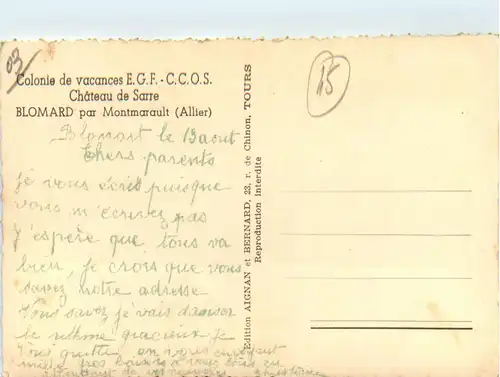 03
Colonie de vacances E.G.F. - C.C.O.S.
Château de Sarre
BLOMARD par Montmarault (Allier)
15
Blomart le 13 aout
Chers parents
je vous écris puisque
vous m'écrivez pas
J'espère que tous va
bien, je crois que vous
savez notre adresse
Vous savez je vais danser
le rithme gracieux je
vous quitte en vous envoyant
mille gros baisers a vous tous en
Edition AIGNAN et BERNARD, 23, r. de Chinon, TOURS
Reproduction interdite